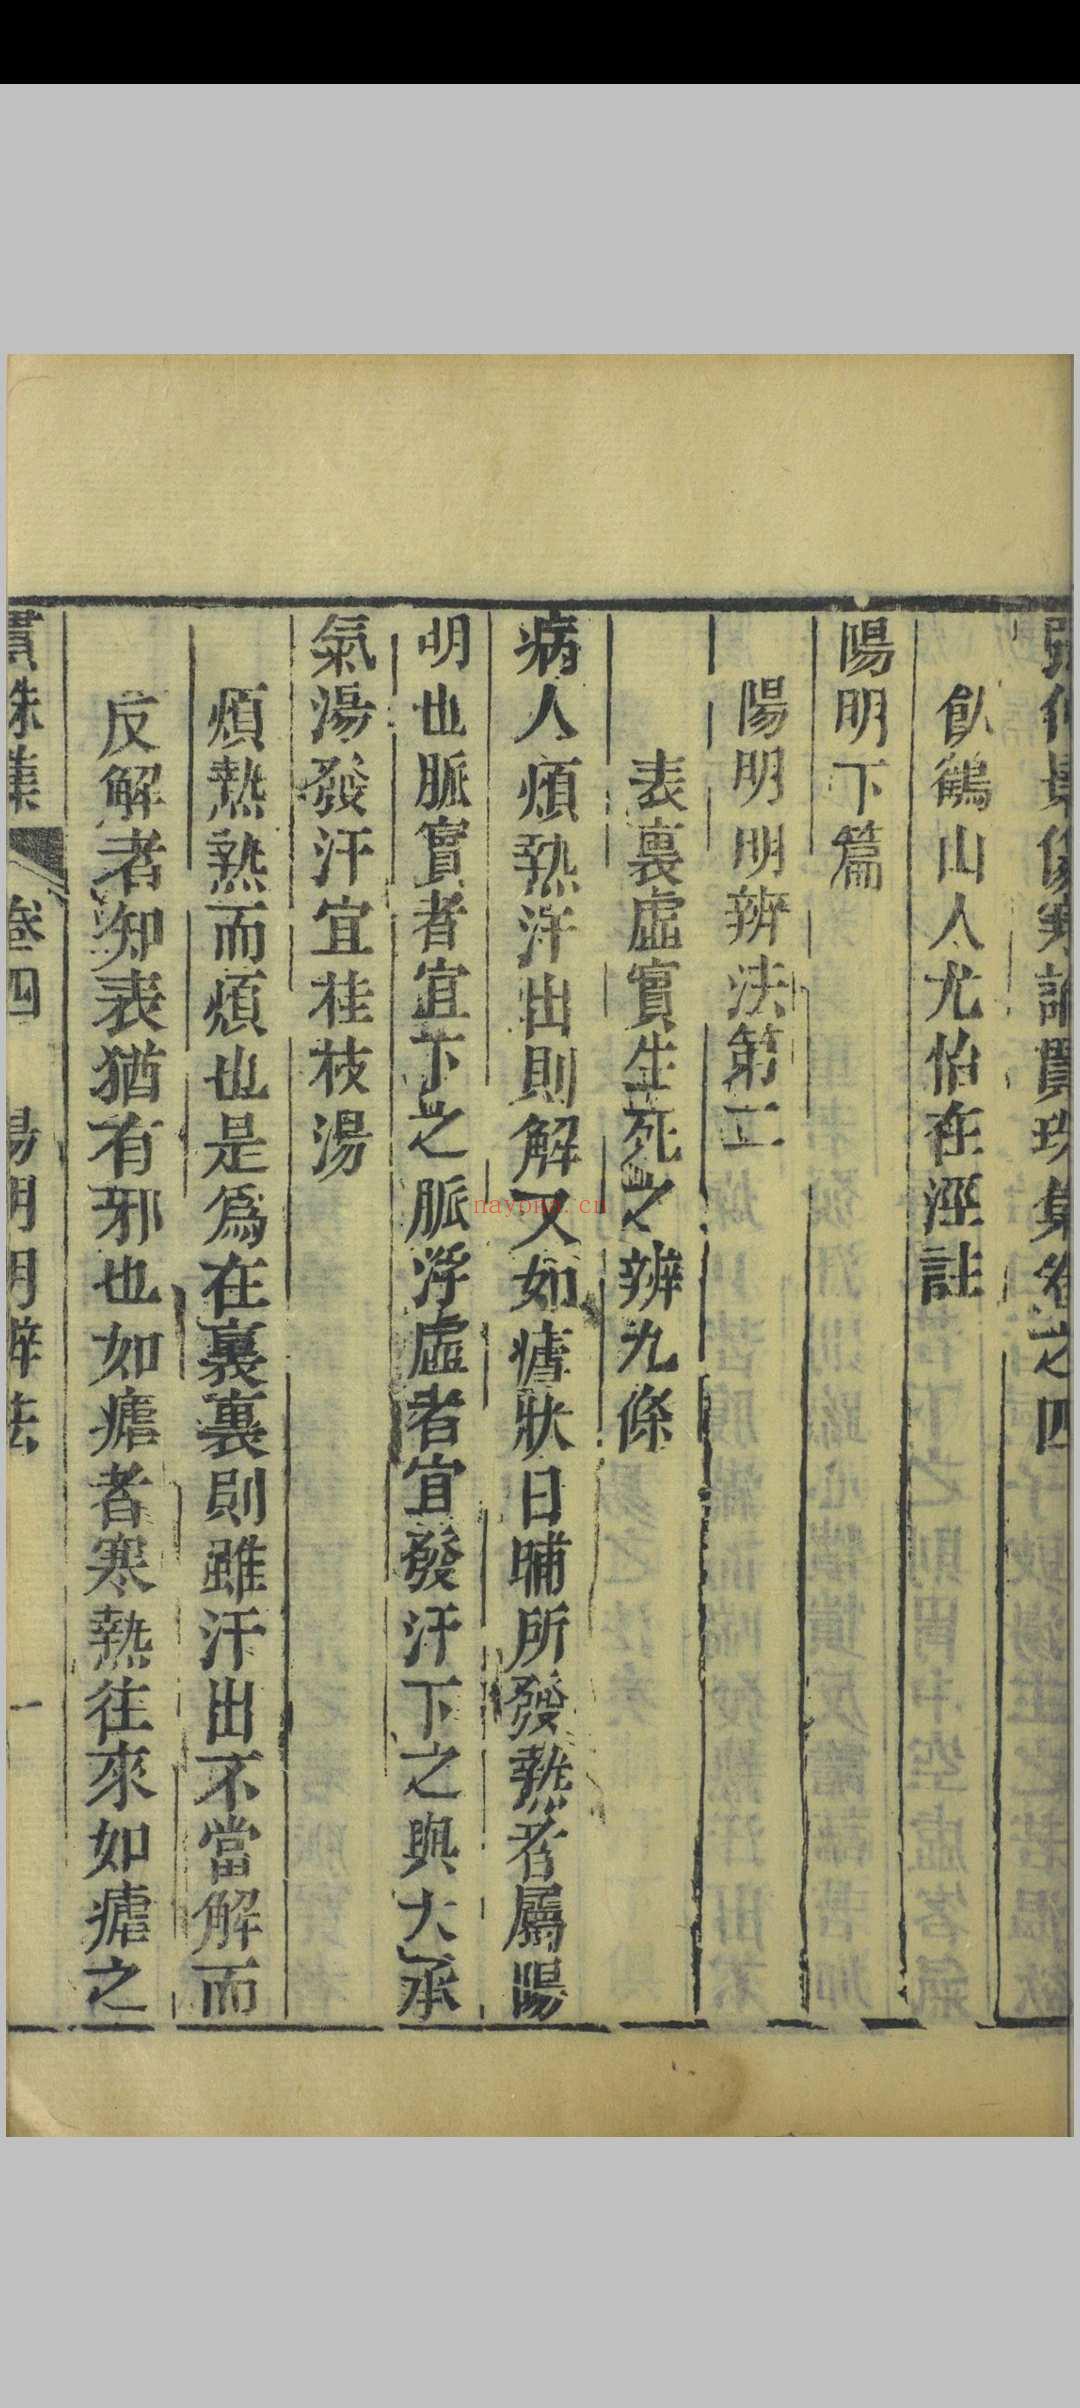 張仲景傷寒論貫珠集卷之四
飲鶴山人尤怡在涇註
陽明下篇
陽明明辨法第二
表裏虛實生死之辨九條
病人煩熱汗出則解又如瘧狀日晡所發熱者屬陽
明也脈實者宜下之脈浮虛者宜發汗下之與大承
氣湯發汗宜桂枝湯
煩熱熱而煩也是爲在裏裏則雖汗出不當解而
反解者知表猶有邪也如瘧者寒熱往來如瘧之
貫珠集 卷四 陽明明辨法 一
nayona.cn